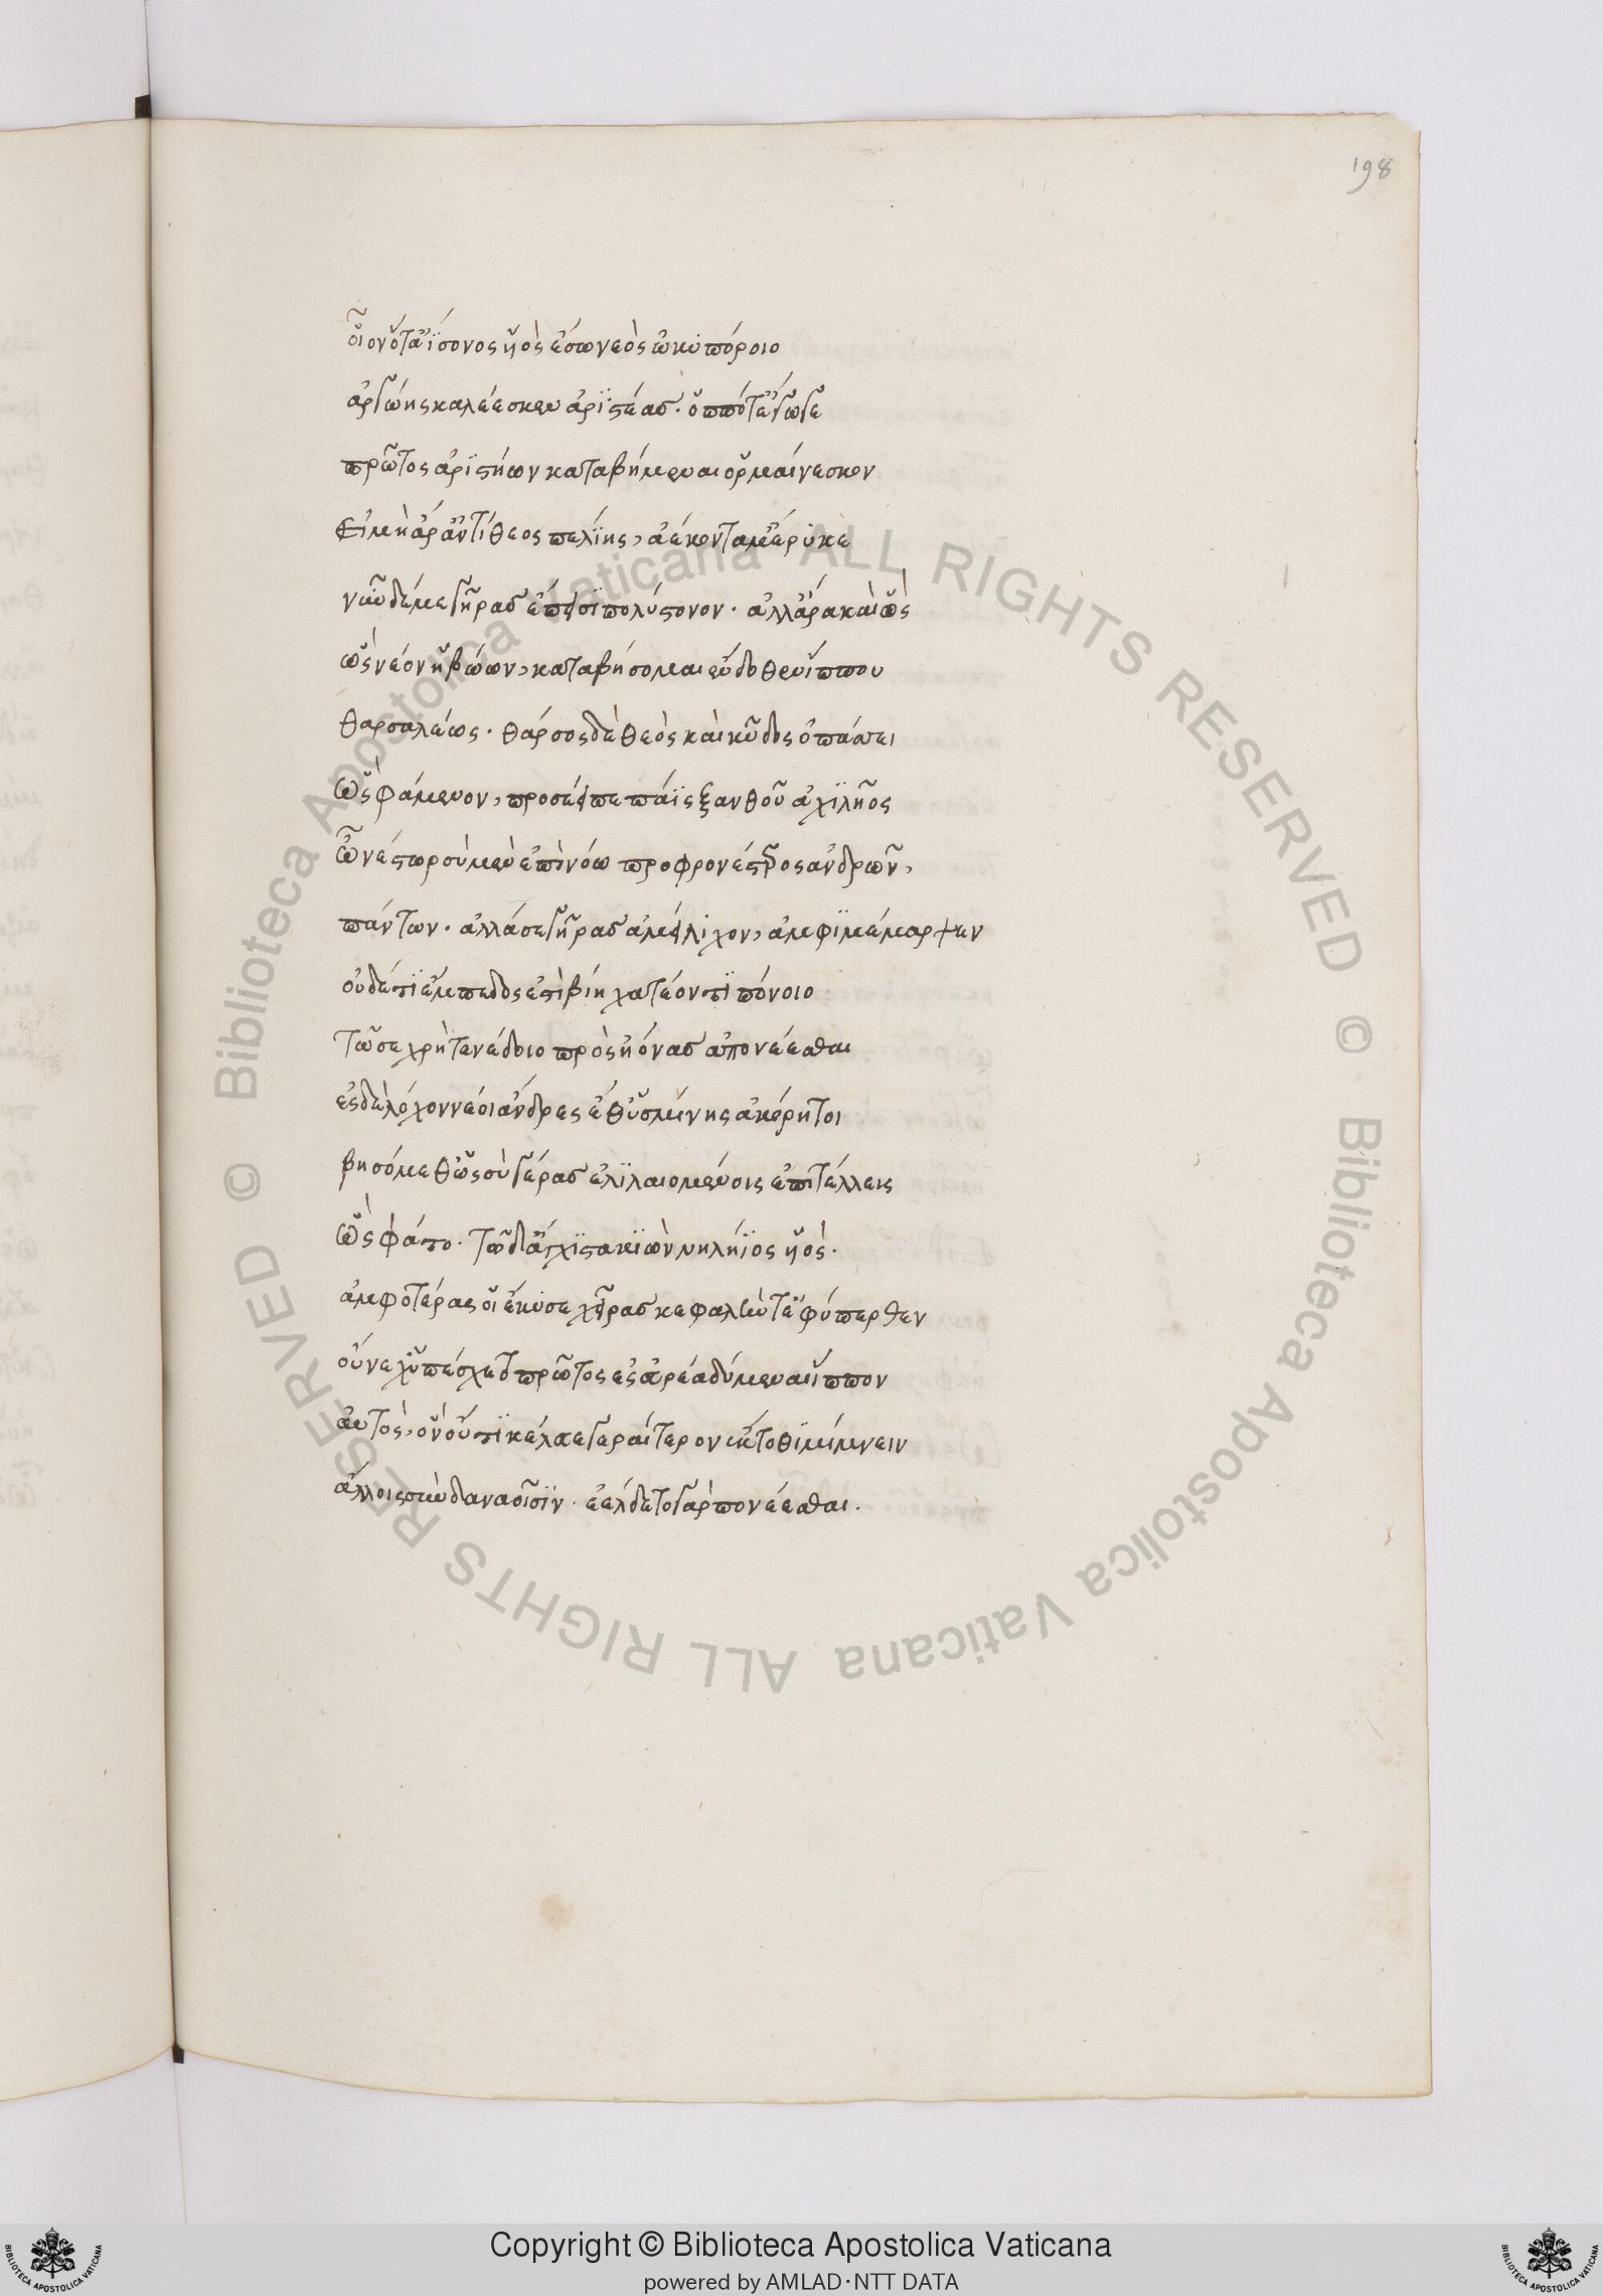 198
οἷον ὅτ' αἴσονος υἱὸς ἔσω νεὸς ὠκυπόροιο
ἀργώης καλέεσκεν ἀριστέας. ὁππότ' ἔγωγε
πρῶτος ἀριστήων καταβήμεναι ὁρμαίνεσκον
εἰ μὴ ἄρ' ἀντίθεος πελίης, ἀέκοντά μ' ἔρυκε
νῦν δέ με γῆρας ἔπεισι πολύστονον. ἀλλ' ἄρα καὶ ὣς
ὡς νέον ἡβώων, καταβήσομαι ἔνδοθεν ἵππου
θαρσαλέως. θάρσος δὲ θεὸς καὶ κῦδος ὀπάσσει
ὣς φάμενον, προσέειπε πάϊς ξανθοῦ ἀχιλῆος
ὦ νέστωρ σὺ μὲν ἐπὶ νόω προφρονέστερος ἀνδρῶν,
πάντων. ἀλλά σε γῆρας ἀμείλιχον, ἀμφιμέμαρφεν
οὐδέ τι ἔμπεδος ἐστὶ βίη χατέοντι πόνοιο
τῶ σε χρὴ τενέδοιο πρὸς ἠόνας ἀπονέεσθαι
ἐς δὲ λόχον νέοι ἄνδρες ἔθ' ὑσμίνης ἀκόρητοι
βησόμεθ' ὡς σὺ γέρας ἐλιλαιομένοις ἐπιτέλλεις
ὣς φάτο. τῶ δ' ἄγχιστα κιὼν νηλήϊος υἱός.
ἀμφοτέρας οἱ ἔκυσε χεῖρας κεφαλήν τ' ἐφύπερθεν
οὕνεχ' ὑπέσχετο πρῶτος ἐς εὐρέα δύμεναι ἵππον
αὐτός, ὃν οὔ τι κέλσε γεραίτερον ἔκτοθι μίμνειν
ἄλλοις σὺν δαναοῖσιν. ἐέλδετο γὰρ πονέεσθαι.
Biblioteca Apostolica Vaticana ALL RIGHTS RESERVED ©
Biblioteca Apostolica Vaticana ALL RIGHTS RESERVED ©
Copyright © Biblioteca Apostolica Vaticana
powered by AMLAD·NTT DATA
BIBLIOTECA APOSTOLICA VATICANA
BIBLIOTECA APOSTOLICA VATICANA